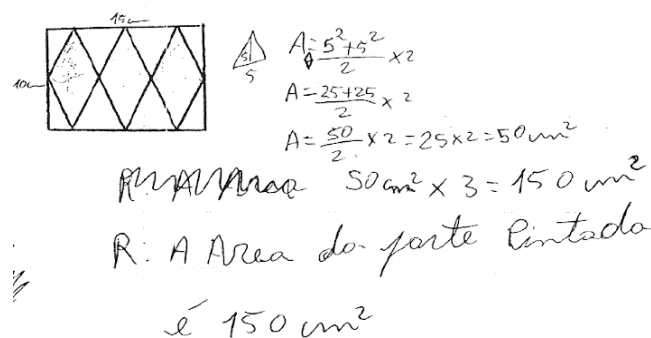 15cm
10cm
5
5
A◊ = 5²+5²/2 x2
A = 25+25/2 x 2
A = 50/2 x 2 = 25x2 = 50cm²
50cm² x 3 = 150cm²
R: A Area da parte Pintada
é 150cm²